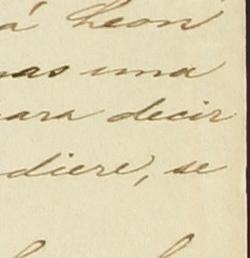 á Leon
una
para decir
diere, se